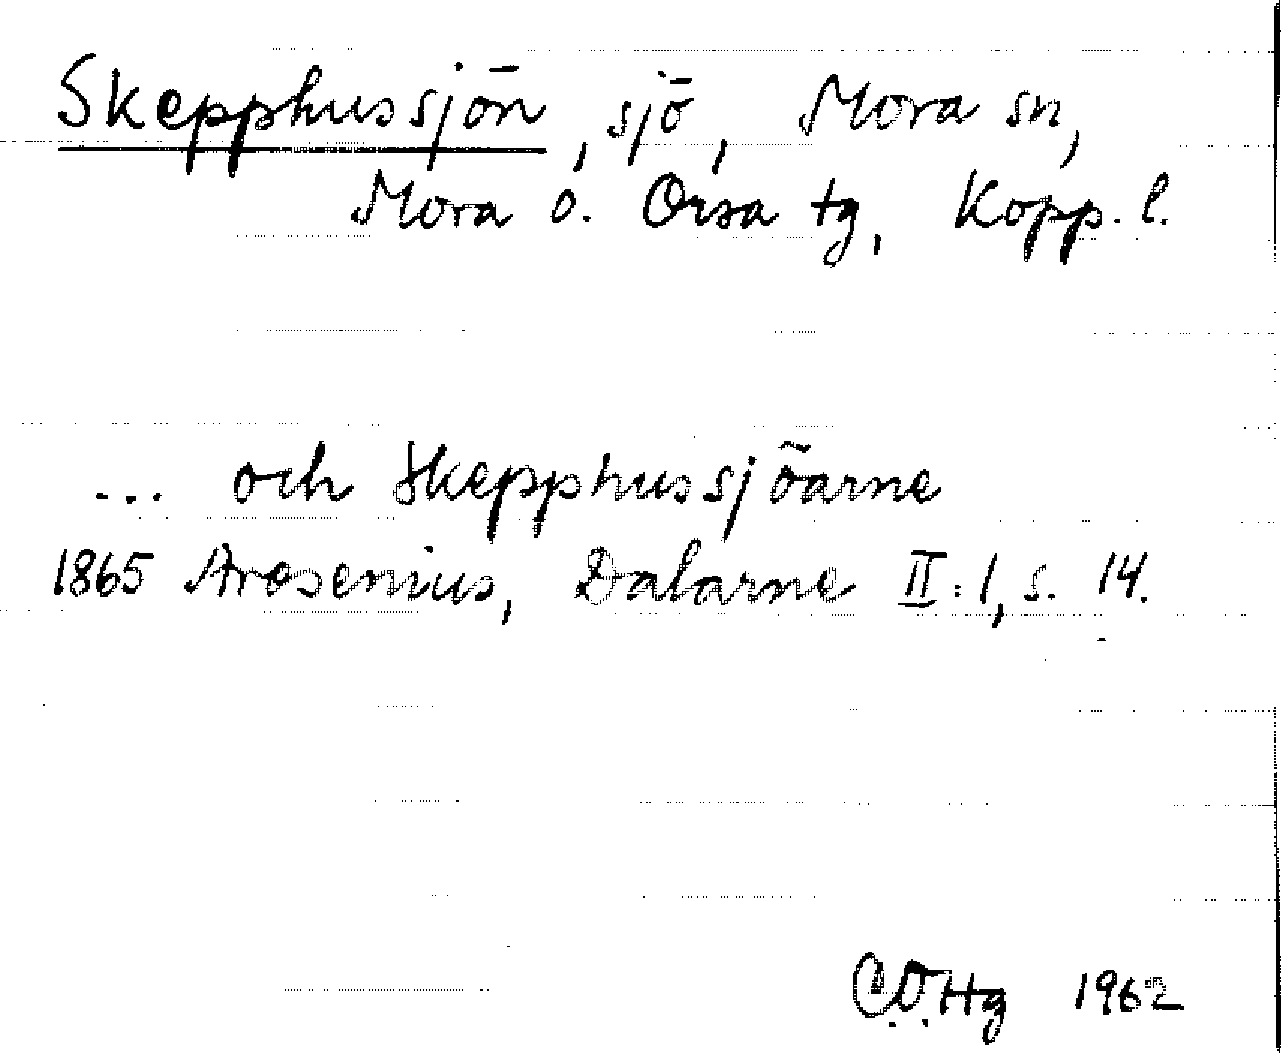 Skepphussjön, sjö, Mora sn,
Mora o. Orsa tg, Kopp. l.
... och Skepphussjöarne
1865 Arosenius, Dalarne II:1, s. 14.
C.D.Hg 1962